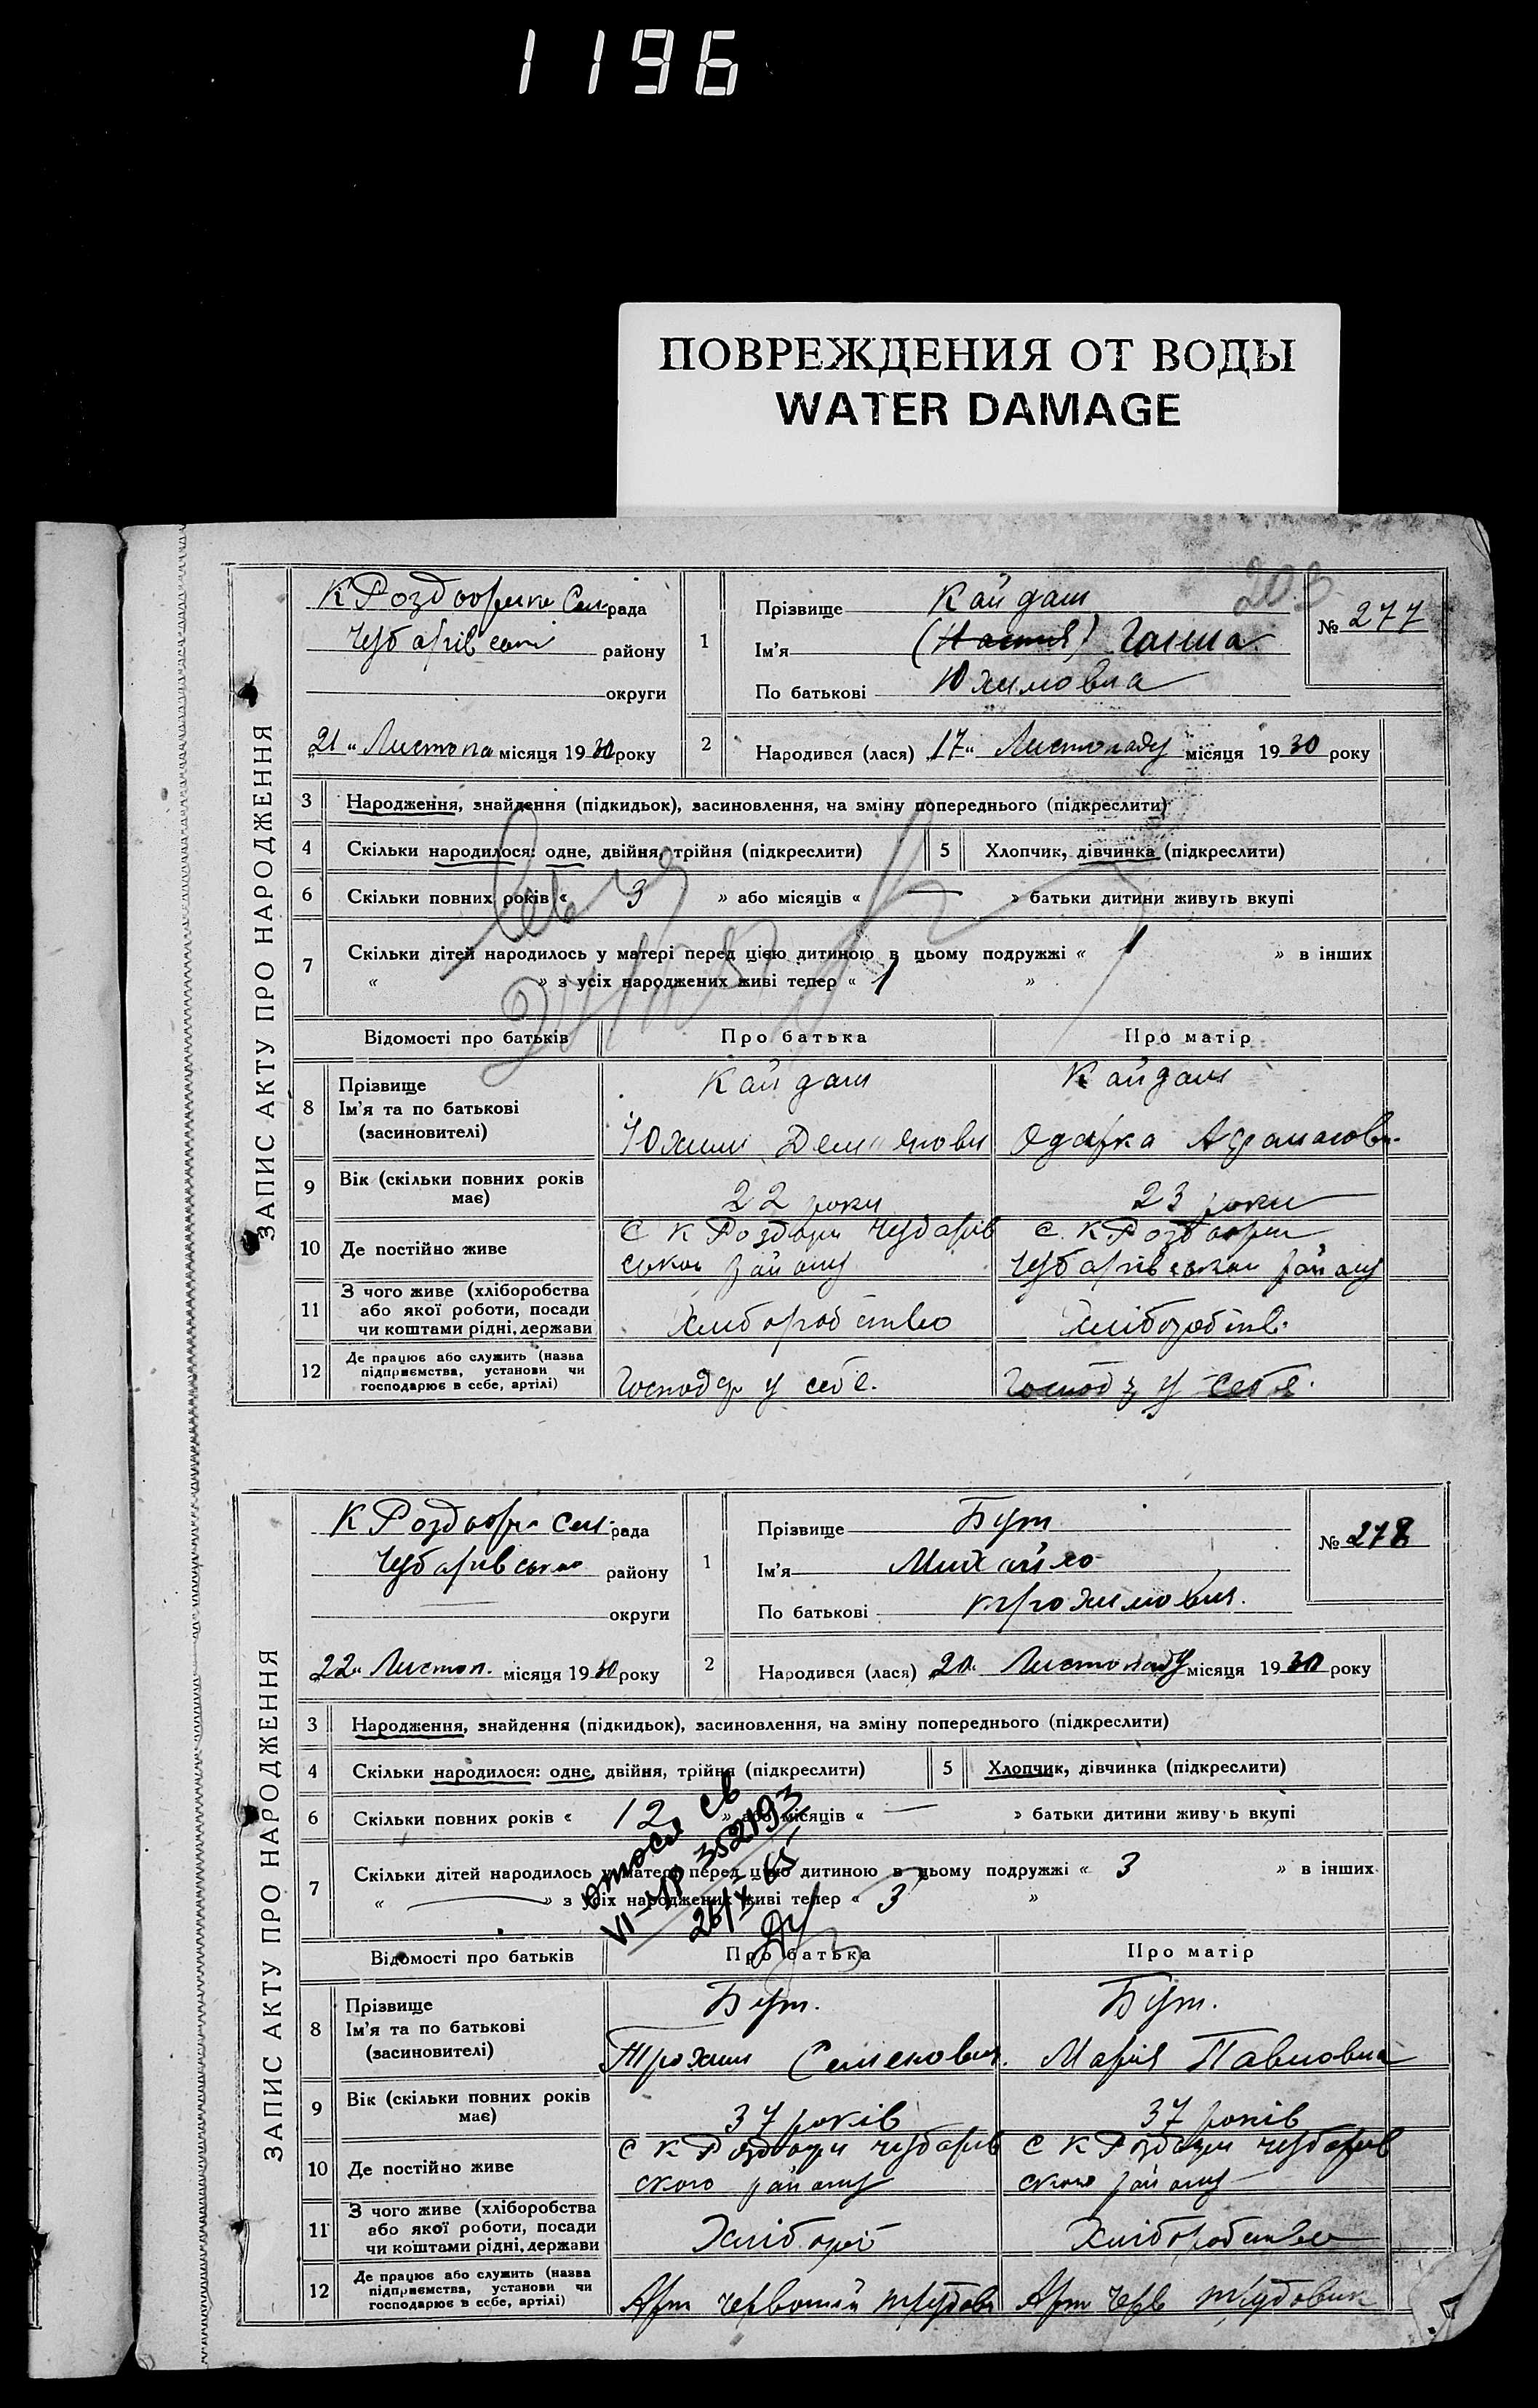 1196
ПОВРЕЖДЕНИЯ ОТ ВОДЫ
WATER DAMAGE
203
ЗАПИС АКТУ ПРО НАРОДЖЕННЯ
К Роздорська Сел рада
Чубарівської району
округи
21 „ Листопа місяця 1930 року
1
Прізвище Кайдаш
Ім'я (Настя) Ганна
По батькові Юхимовна
№ 277
2
Народився (лася) „17“ Листопаду місяця 1930 року
3 Народження, знайдення (підкидьок), засиновлення, на зміну попереднього (підкреслити)
4 Скільки народилося: одне, двійня, трійня (підкреслити) 5 Хлопчик, дівчинка (підкреслити)
6 Скільки повних років « 3 » або місяців « — » батьки дитини живуть вкупі
7 Скільки дітей народилось у матері перед цією дитиною в цьому подружжі « 1 » в інших
« » з усіх народжених живі тепер « 1 »
Відомості про батьків Про батька Про матір
8 Прізвище
Ім'я та по батькові
(засиновителі)
Кайдаш
Юхим Демянови
Кайдаш
Одарка Афанасов.
9 Вік (скільки повних років має) 22 роки 23 роки
10 Де постійно живе
С К Роздори Чубарів
ської району
С. К. Роздори
Чубарівської району
11 З чого живе (хліборобства
або якої роботи, посади
чи коштами рідні, держави
Хліборобство
Хліборобств.
12 Де працює або служить (назва
підприємства, установи чи
господарює в себе, артілі)
Господар у себе.
Господ у себе.
ЗАПИС АКТУ ПРО НАРОДЖЕННЯ
К Роздорс Сел рада
Чубарівсько району
округи
22 „ Листоп. місяця 1930 року
1
Прізвище Бут
Ім'я Михайло
По батькові трохимович.
№ 278
2
Народився (лася) „20“ Листопаду місяця 1930 року
3 Народження, знайдення (підкидьок), засиновлення, на зміну попереднього (підкреслити)
4 Скільки народилося: одне, двійня, трійня (підкреслити) 5 Хлопчик, дівчинка (підкреслити)
6 Скільки повних років « 12 » або місяців « — » батьки дитини живуть вкупі
7 Скільки дітей народилось у матері перед цією дитиною в цьому подружжі « 3 » в інших
« — » з усіх народжених живі тепер « 3 »
св
VI-ЯР 352193
26/X 65
Відомості про батьків Про батька Про матір
8 Прізвище
Ім'я та по батькові
(засиновителі)
Бут.
Трохим Семенович.
Бут.
Марія Павловна
9 Вік (скільки повних років має) 37 років 37 років
10 Де постійно живе
С К Роздори чубарів
ского району
С К Роздори чубарів
ского району
11 З чого живе (хліборобства
або якої роботи, посади
чи коштами рідні, держави
Хлібороб
Хліборобство
12 Де працює або служить (назва
підприємства, установи чи
господарює в себе, артілі)
Арт червоний трудови
Арт Черв трудовик